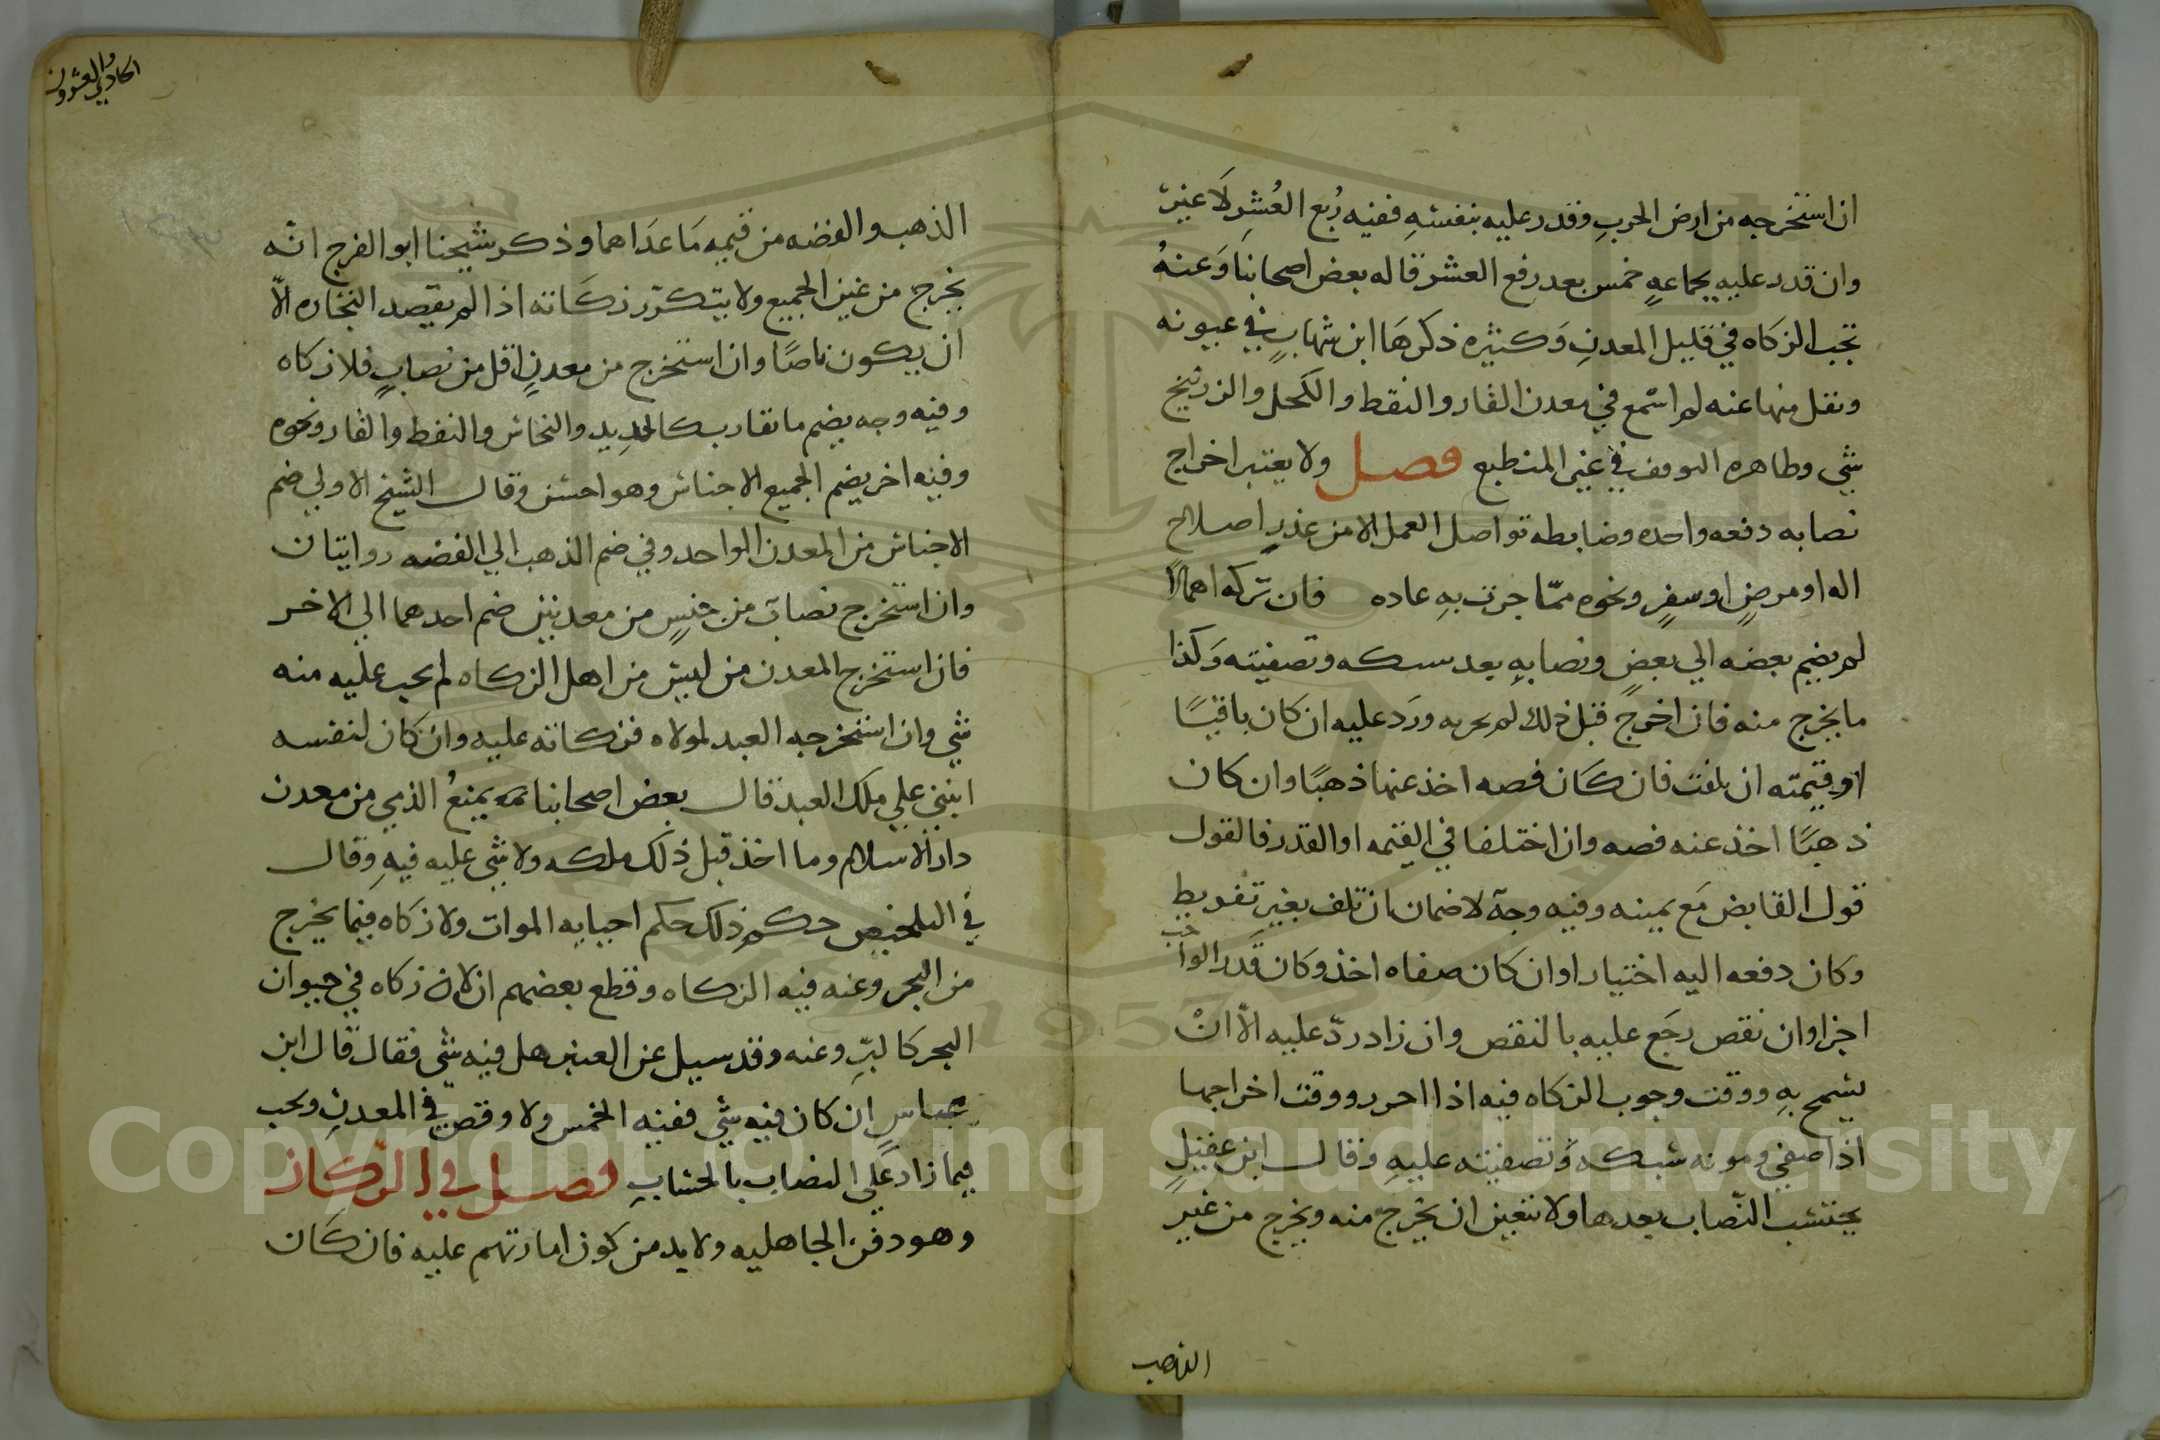 ان استخرجه من ارض الحربِ وقدر عليه بنفسهِ ففيه رُبع العُشرِ لَا غير
وان قدر عليه بجماعهٍ خمس بعد رفع العشر قاله بعض اصحابنَا وَعنهُ
تجب الزكاه في قليل المعدنِ وَكثيره ذكرهَا ابن شهابٍ في عيونه
ونقل مهنا عنه لم اسْمع في معدن القار والنفط والكحل والزرنيخ
شي وظاهره التوقف في غير المنطبع فصل ولا يعتبر اخراج
نصابه دفعه واحده وضابطه تواصل العمل الا من عذرٍ اصلاح
اله اومرضٍ اوسفرٍ ونحوه ممّا جرت بهِ عاده فان تركه اهمالاً
لم يضم بعضه الي بعضٍ ونصابهِ بعد سبكه وتصفيته وَكذا
ما يخرج منه فان اخرج قبل ذلك لم يجزيه ورَد عليه ان كان باقيًا
او قيمته ان تلفت فان كَان فضه اخذ عنها ذهبًا وان كان
ذهبًا اخذ عنه فضه وان اختلفا في القيمه او القدر فالقول
قول القابض مَع يمينه وفيه وجهٌ لا ضمان ان تلف بغير تفريط
وكان دفعه اليه اختيارا وان كان صفاه اخذ وكان قَدر الواجب
اجزا وان نقص رجَع عليه بالنقص وان زاد ردّ عليه الّا انْ
يسمح بهِ ووقت وجوب الزكاه فيه اذا احرز ووقت اخراجها
اذا صفي ومونه سبكه وَتصفيته عليهِ وقال ابن عقيلٍ
يحتسب النّصاب بعدها ولا تتعين ان يخرج منه ويخرج من غير
الذهب
الحادي والعشرون
الذهب والفضه من قيمه مَا عدَاهما وذكر شيخنا ابو الفرج انّه
يخرج من عين الجميع ولا يتكرّر زكَاته اذا لم يقصد التجاره الّا
ان يكون ناضًا وان استخرج من معدنٍ اقل من نصابٍ فلا زكاه
وفيه وجه يضم ما تقارب كالحديد والنحاس والنفط والقار ونحوه
وفيه اخر يضم الجميع الاجناس وهو احسن وقال الشيخ الاولي ضم
الاجناس من المعدن الواحد وفي ضم الذهب الي الفضه روايتان
وان استخرج نصابٌ من جنسٍ من معدنين ضم احدهما الي الاخر
فان استخرج المعدن من ليس من اهل الزكاه لم يجب عليه منه
شي وان استخرجه العبد لمولاه فزكاته عليه وان كَان لنفسه
ابنني علي ملك العبد قال بعض اصحابنا يمنعُ الذمي من معدن
دار الاسلام وما اخذ قبل ذلك ملكه ولا شي عليه فيهِ وقال
في التلخيص حكم ذلك حكم احيايه الموات ولا زكاه فيما يخرج
من البحر وعنه فيه الزكاه وقطع بعضهم ان لا زكاه في حيوان
البحر كالبرِّ وعنه وقد سيل عن العنبر هل فيه شي فقال قال ابن
عباسٍ ان كان فيه شي ففيه الخمس ولا وقص في المعدنِ ويجب
فيما زاد عَلي النصاب بالحسَابِ فصل في الركاز
وهو دفن الجاهليه ولا بد من كون اماراتهم عليه فان كَان
Copyright © King Saud University
1957